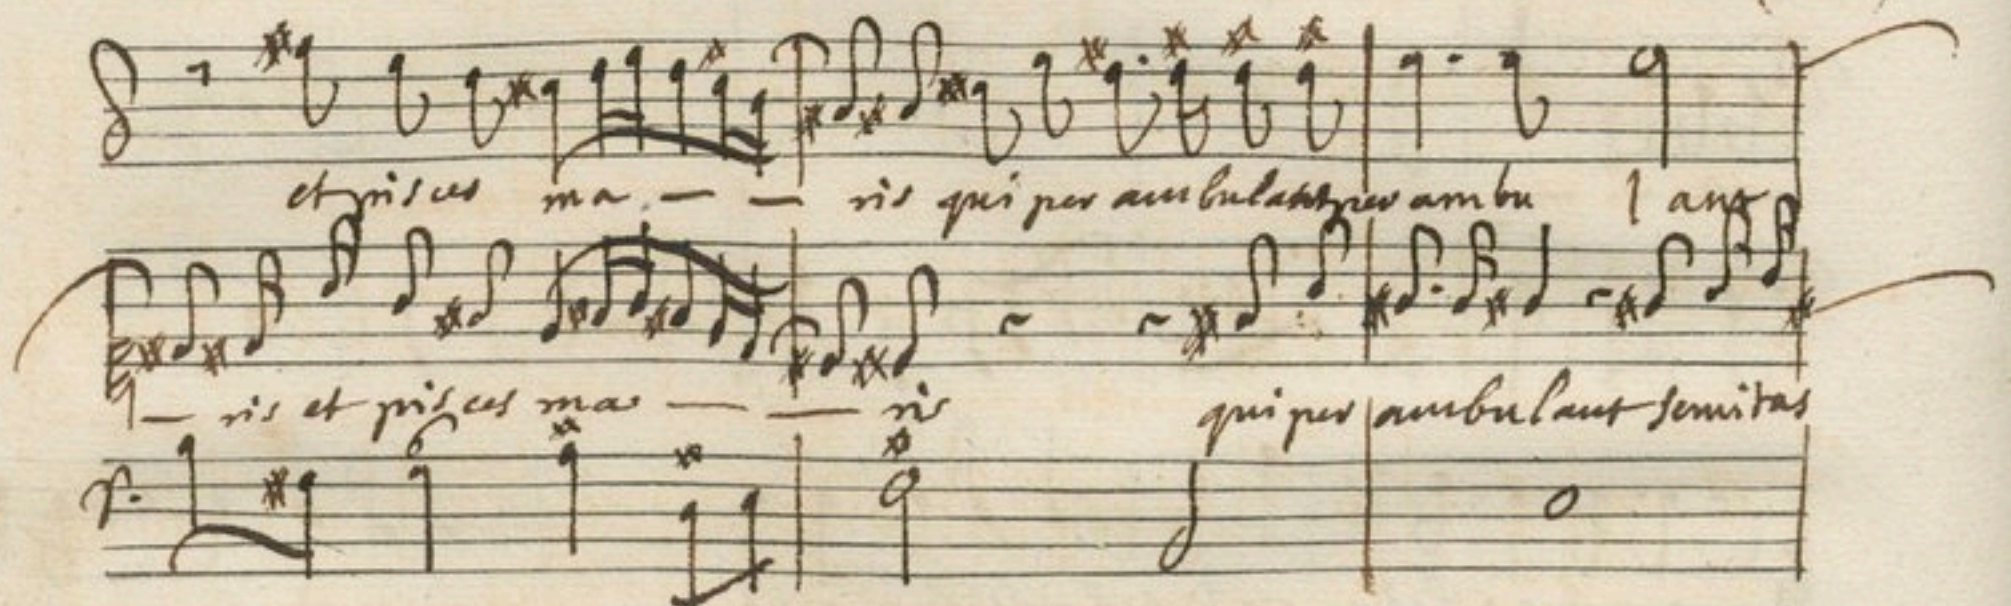 et pisces ma — — ris qui per ambulant per ambu l ant
— ris et pisces ma — — ris qui per ambulant semitas